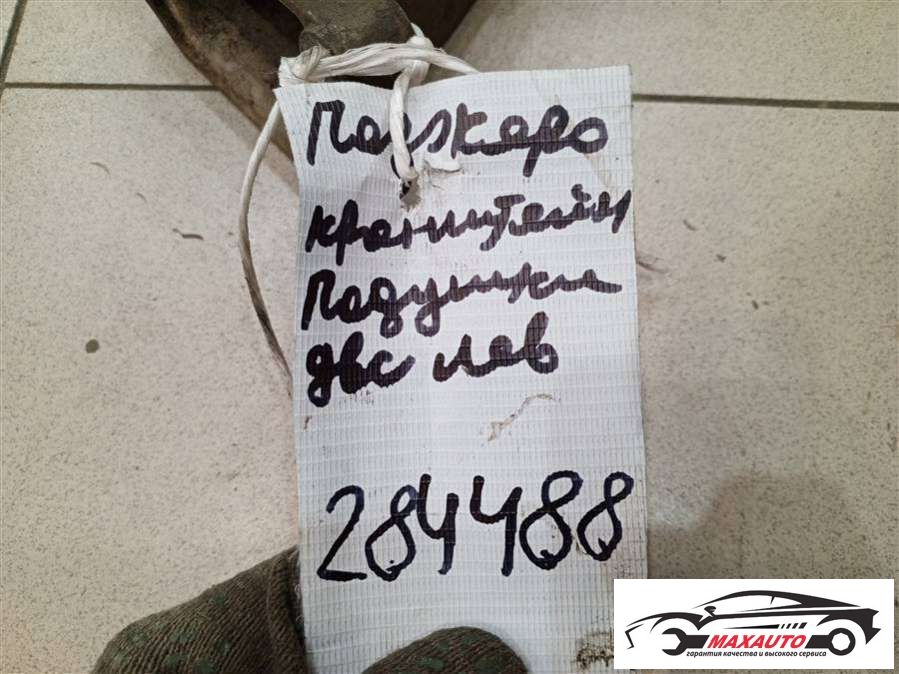 Паджеро
кронштейн
подушки
двс лев
284488
MAXAUTO
гарантия качества и высокого сервиса